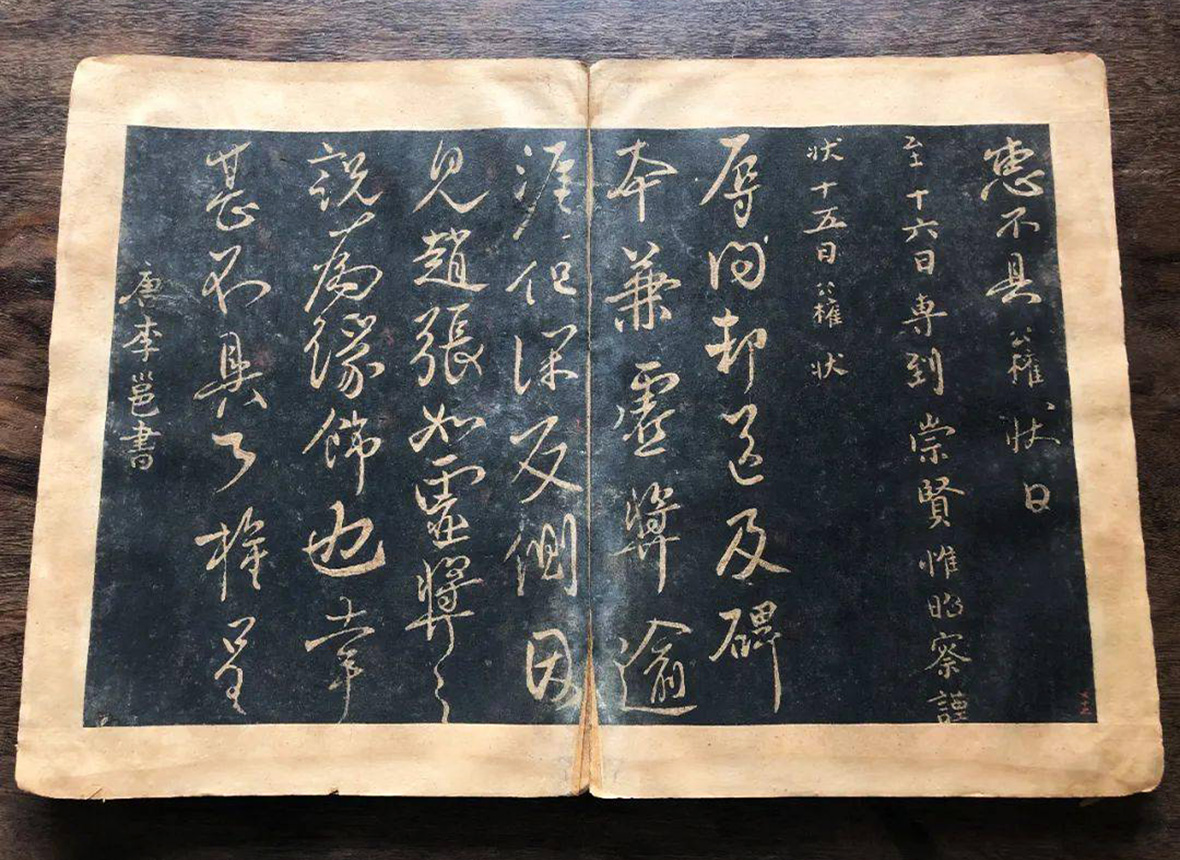 惠不具公權狀日
至十六日專到崇賢惟昭察謹
狀十五日公權狀
辱問却送及碑
本兼虛獎逾
涯但深反側因
見趙張如虛獎之
說為緣飾也幸
甚不具權呈
唐李邕書